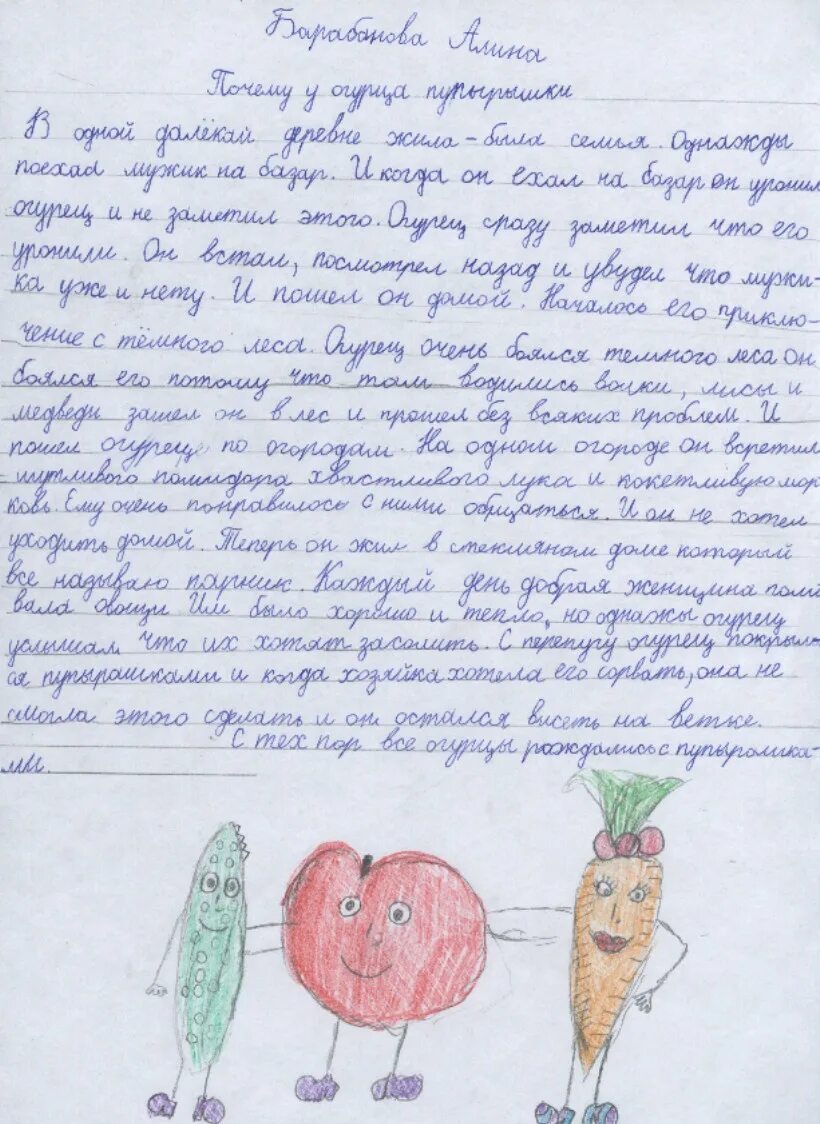 Барабанова Алина
Почему у огурца пупырышки
В одной далёкай деревне жила-была семья. Однажды
поехал мужик на базар. И когда он ехал на базар он уронил
огурец и не заметил этого. Огурец сразу заметил что его
уронили. Он встал, посмотрел назад и увудел что мужи-
ка уже и нету. И пошел он домой. Началось его приклю-
чение с тёмного леса. Огурец очень боялся темного леса он
боялся его потому что там водились волки, лисы и
медведи зашел он в лес и прошел без всяких проблем. И
пошел огурец по огородам. На одном огороде он встретил
шутливого помидора хвастливого лука и кокетливую мор
ковь. Ему очень понравилось с ними общаться. И он не хотел
уходить домой. Теперь он жил в стеклянам доме который
все называю парник. Каждый день добрая женщина поли
вала овощи. Им было хорошо и тепло, но однажы огурец
услышал что их хотят засолить. С перепугу огурец покрыл-
ся пупырашками и когда хозяйка хотела его сорвать, она не
смогла этого сделать и он остался висеть на ветке.
С тех пор все огурцы рождались с пупырошка-
ми.